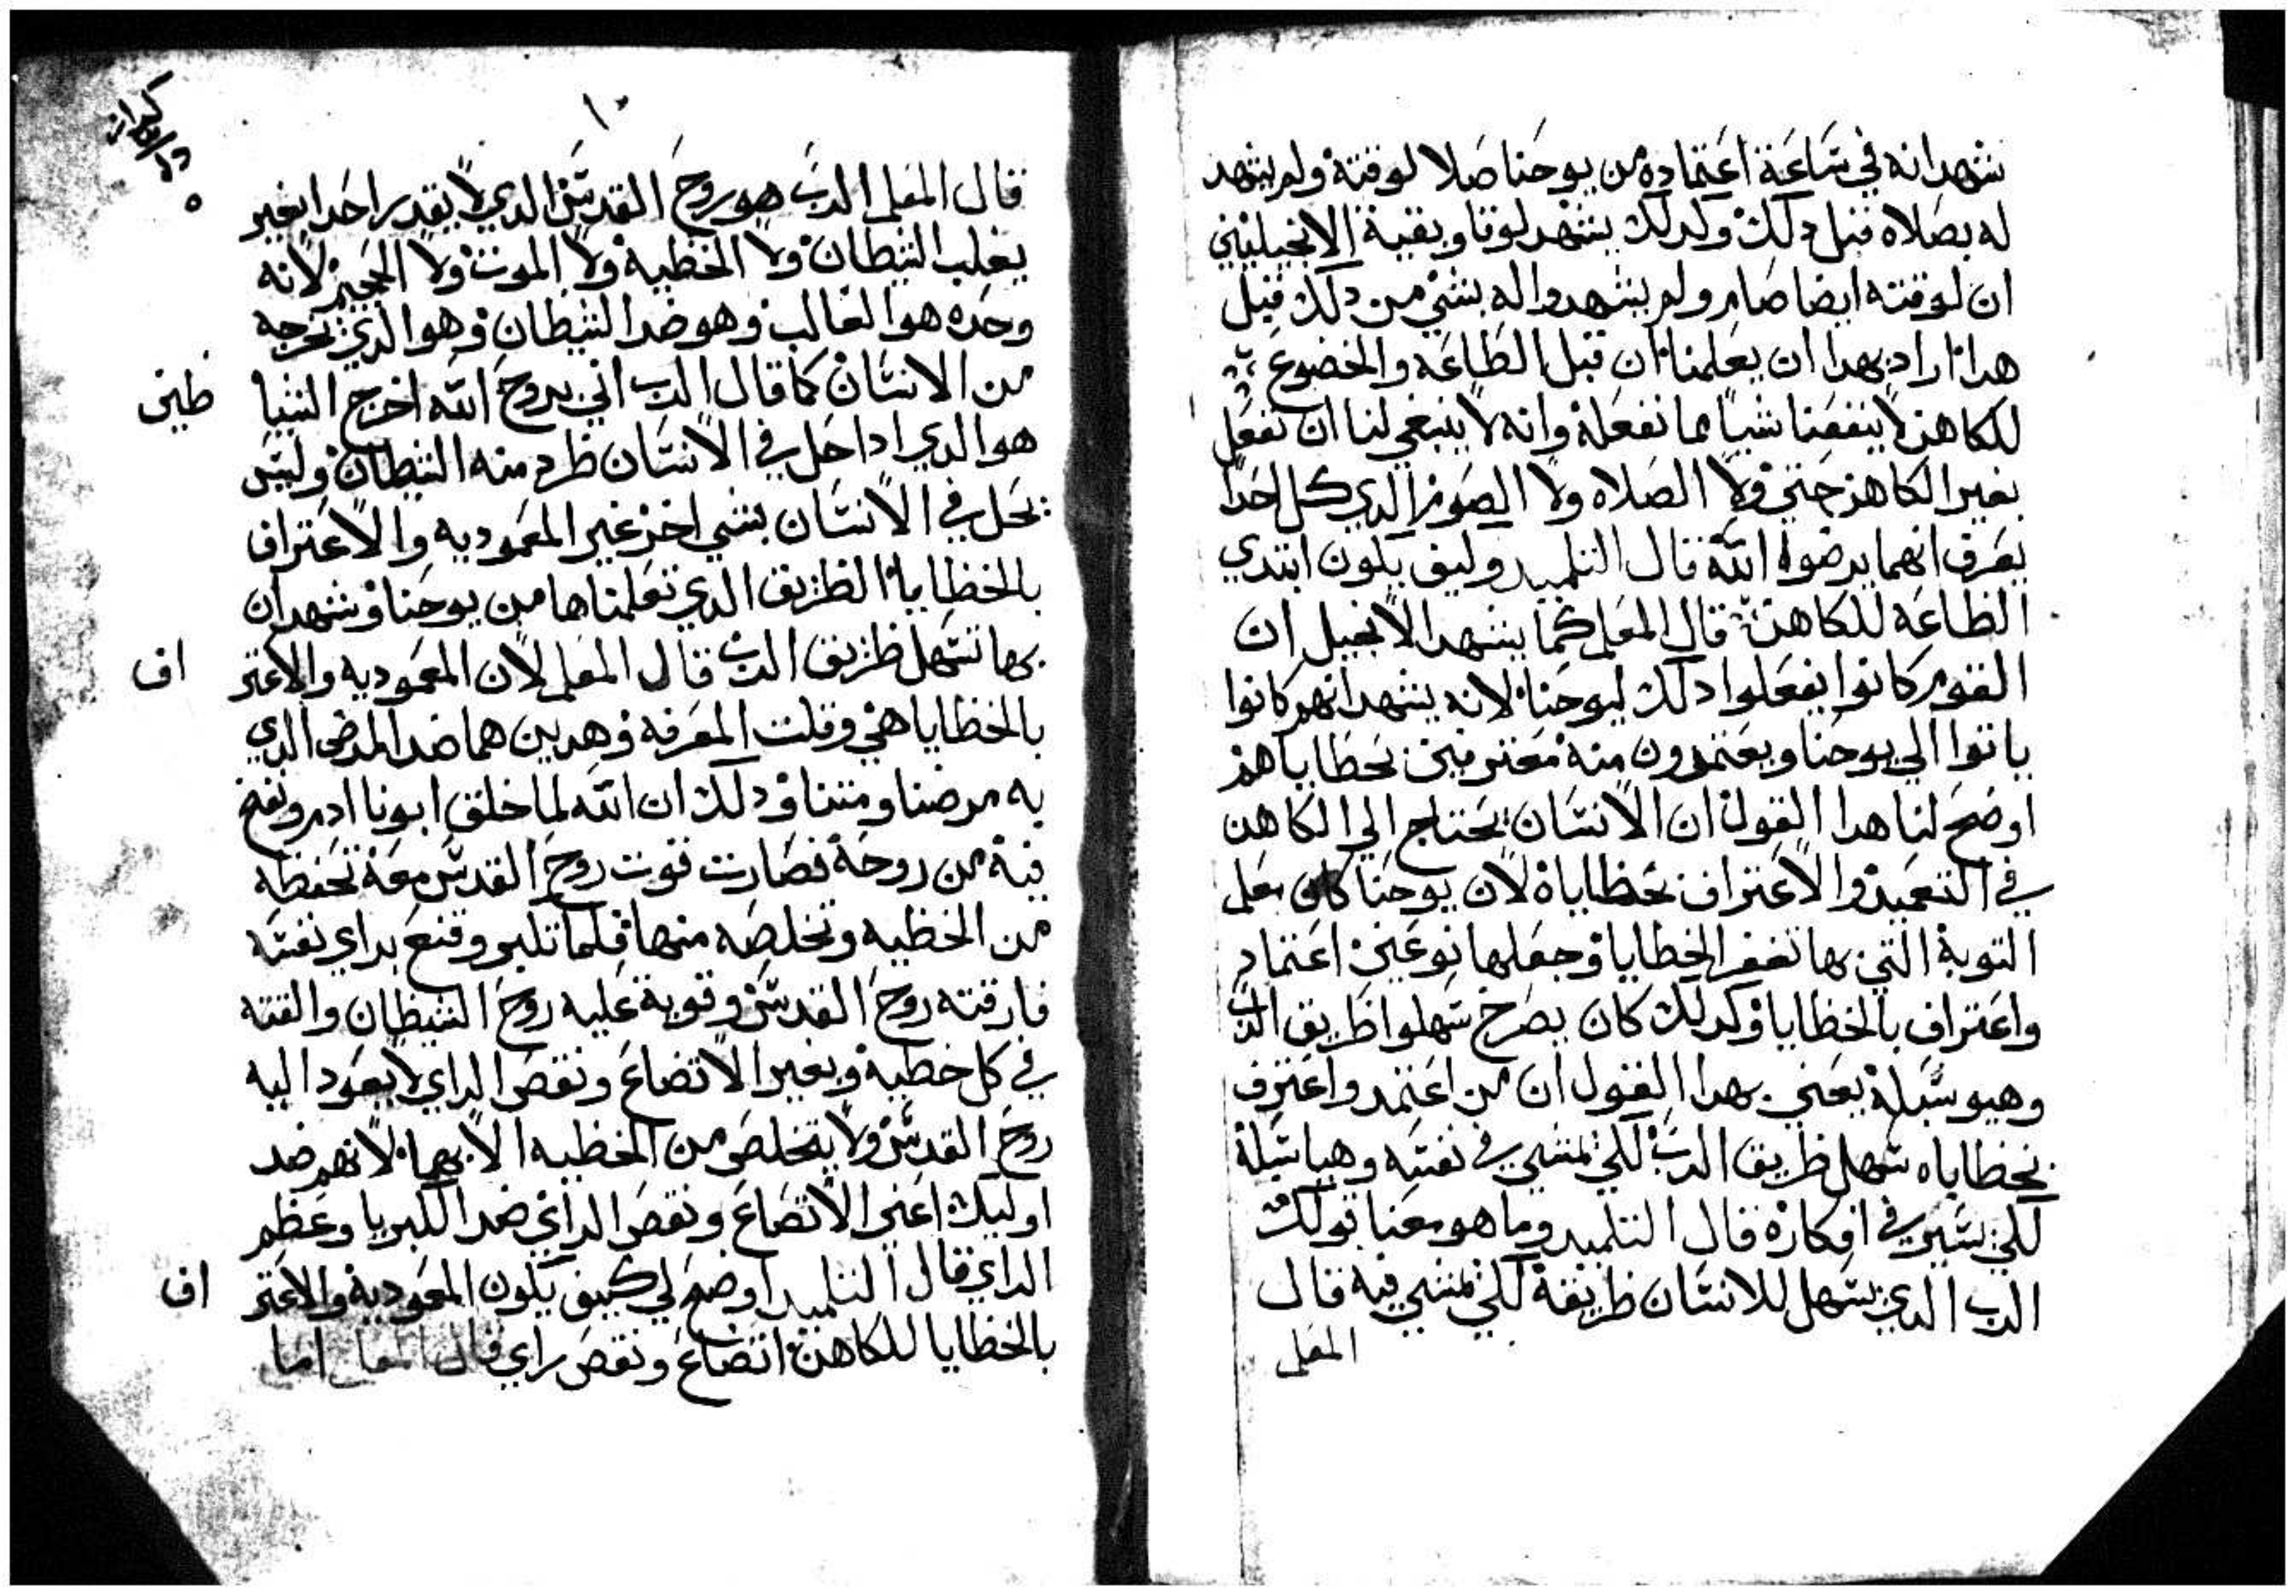 شهد انه في ساعة اعتماده من يوحنا صلا لوقته ولم يشهد
له بصلاه قبل دلك وكدلك يشهد لوقا وبقية الانجيليين
ان لوقته ايضا صام ولم يشهدوا له بشي من دلك قبل
هدا اراد بهدا ان يعلمنا ان قبل الطاعه والخضوع
للكاهن لا ينفعنا شيا مما نفعله وانه لا ينبغي لنا ان نفعل
بغير الكاهن حتي ولا الصلاه ولا الصوم الدي كل احدا
يعرف انهما يرضوا الله قال التلميد وكيف يكون ابتدي
الطاعه للكاهن قال المعلم كما يشهد الانجيل ان
القوم كانوا يفعلوا دلك ليوحنا لانه يشهد انهم كانوا
ياتوا الي يوحنا ويعتمدون منه معترفين بخطاياهم
اوضح لنا هدا القول ان الانسان يحتاج الي الكاهن
في التعميد والاعتراف بخطاياه لان يوحنا كان يعلم
التوبة التي بها تغفر الخطايا وجعلها نوعين اعتماد
واعتراف بالخطايا وكدلك كان يصرخ سهلوا طريق الرب
وهيو سبله يعني بهدا القول ان من اعتمد واعترف
بخطاياه سهل طريق الرب لكي يمشي في نفسه وهيا سبله
لكي يسير في افكاره قال التلميد وما هو معنا قولك
الرب الدي يسهل للانسان طريقه لكي يمشي فيه قال
المعلم
١٠
قال المعلم الرب هو روح القدس الدي لا يقدر احدا بغيره
يغلب الشيطان ولا الخطيه ولا الموت ولا الجحيم لانه
وحده هو الغالب وهو ضد الشيطان وهو الدي يخرجه
من الانسان كما قال الرب اني بروح الله اخرج الشيا طين
هو الدي ادا حل في الانسان طرد منه الشيطان وليس
يحل في الانسان بشي اخر غير المعموديه والاعتراف
بالخطايا الطريق الدي تعلمناها من يوحنا وشهد ان
بها تسهل طريق الرب قال المعلم لان المعموديه والاعتر اف
بالخطايا هي وقلت المعرفه وهدين هما ضد المرض الدي
به مرضنا ومتنا ودلك ان الله لما خلق ابونا ادم ونفخ
فيه من روحه فصارت قوت روح القدس معه تحفظه
من الخطيه وتخلصه منها فلما تكبر وقنع براي نفسه
فارقته روح القدس وقوية عليه روح الشيطان والقته
في كل خطيه وبغير الاتضاع ونقص الراي لا يعود اليه
روح القدس ولا يتخلص من الخطيه الا بهما لانهم ضد
اوليك اعني الاتضاع ونقص الراي ضد الكبريا وعظم
الراي قال التلميد اوضح لي كيف يكون المعموديه والاعتر اف
بالخطايا للكاهن اتضاع ونقص راي قال المعلم اما